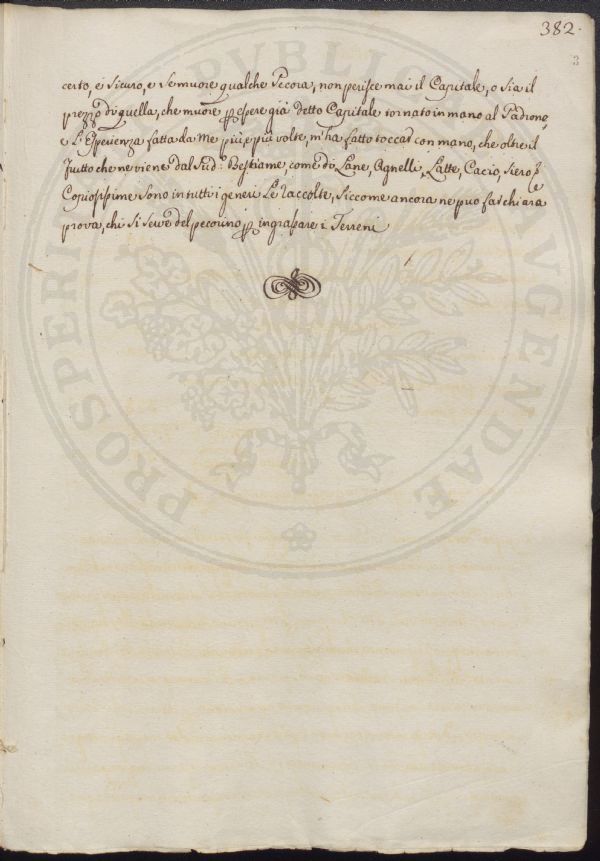 382.
3
certo, e sicuro, e se muore qualche Pecora, non perisce mai il Capitale, o sia il
prezzo di quella, che muore p essere già detto Capitale tornato in mano al Padrone,
e L'Esperienza fatta da me più, e più volte, m'ha fatto toccar con mano, che oltre il
frutto che ne viene dal Sud.o Bestiame, come di Lane, Agnelli, Latte, Cacio, Siero &c
Copiosissime sono in tutti i generi Le raccolte, siccome ancora ne può far chiara
prova, chi si serve del pecorino p ingrassare i Terreni
PROSPERI PUBLICAE AUGENDAE